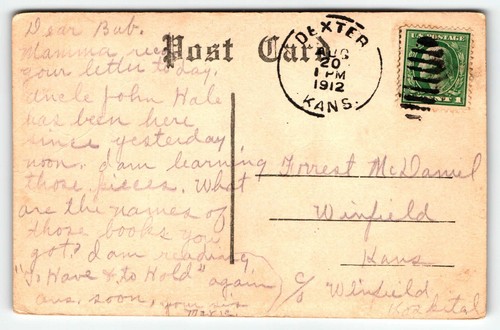 Post Card
DEXTER
AUG
20
1 PM
1912
KANS.
U.S. POSTAGE
Dear Bub.
Mamma rec
your letter to day.
Uncle John Hale
has been here
since yesterday
noon. I am learning
those pieces. What
are the names of
those books you
got? I am reading
"To Have & to Hold" again
ans. soon, your sis
Forrest McDaniel
Winfield
Kans
c/o Winfield
Hospital